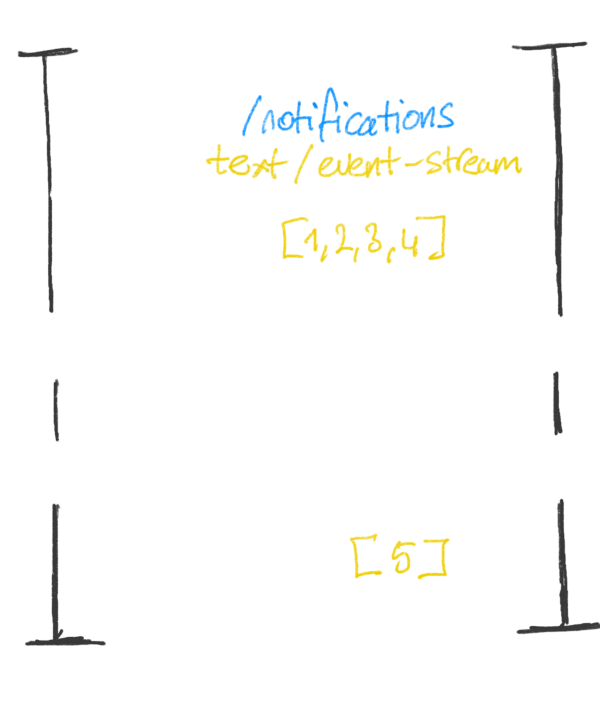 /notifications
text/event-stream
[1,2,3,4]
[5]